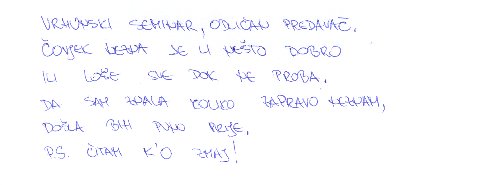 VRHUNSKI SEMINAR, ODLIČAN PREDAVAČ.
ČOVJEK NEZNA JE LI NEŠTO DOBRO
ILI LOŠE SVE DOK NE PROBA.
DA SAM ZNALA KOLIKO ZAPRAVO NEZNAM,
DOŠLA BIH PUNO PRIJE.
P.S. ČITAM K'O ZMAJ!